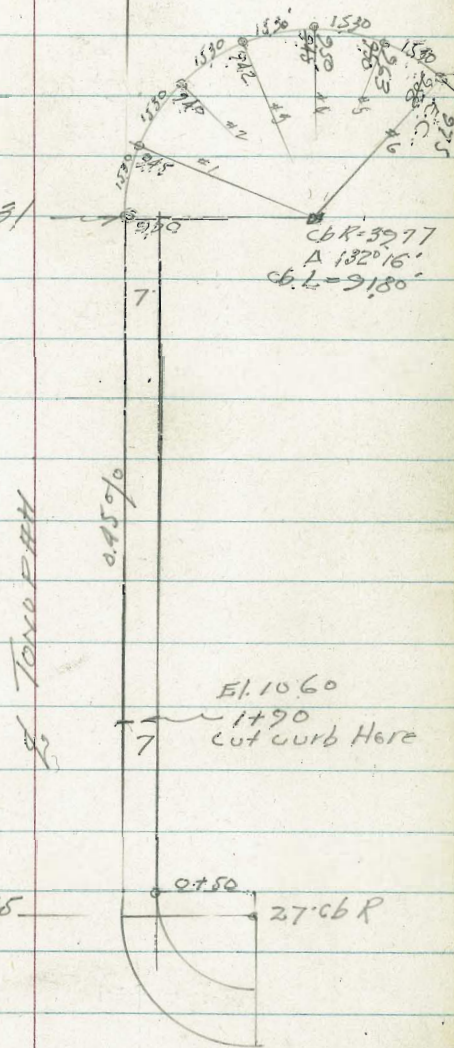 1530
1530
1530
1530
1530
1530
945
940
942
945
975
E.C.
#1
#2
#3
#4
#5
#6
31
cb R=3977
Δ 132°16'
cb. L=9180
7
0.45%
℄ TONOPAH
El. 1060
1+90
cut curb Here
7
0+50
5
27. cb R